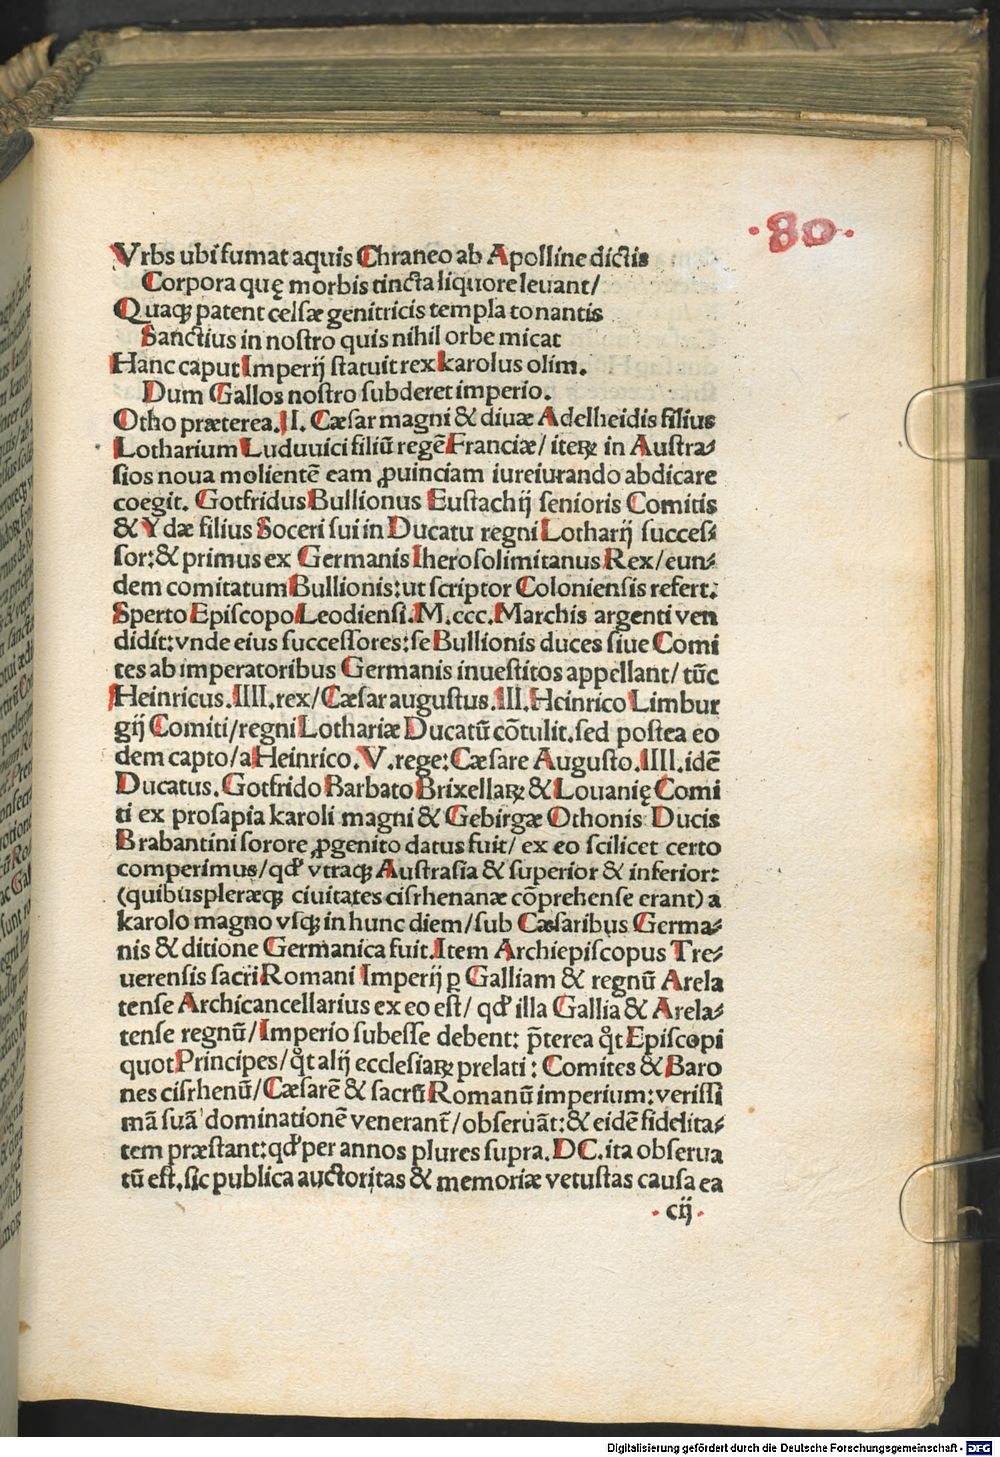 ·80·
Vrbs ubi fumat aquis Chraneo ab Apolline dictis
Corpora quę morbis tincta liquore leuant/
Quaqꝫ patent celsæ genitricis templa tonantis
Sanctius in nostro quis nihil orbe micat
Hanc caput Imperij statuit rex karolus olim.
Dum Gallos nostro subderet imperio.
Otho præterea.II. Cæsar magni & diuæ Adelheidis filius
Lotharium Luduuici filiū regē Franciæ/ iteꝝ in Austra⸗
sios noua molientē eam ꝓuinciam iureiurando abdicare
coegit. Gotfridus Bullionus Eustachij senioris Comitis
& Ydæ filius Soceri sui in Ducatu regni Lotharij succes⸗
sor:& primus ex Germanis Iherosolimitanus Rex/eun⸗
dem comitatum Bullionis:ut scriptor Coloniensis refert:
Sperto Episcopo Leodiensi.M.ccc.Marchis argenti ven
didit:vnde eius successores:se Bullionis duces siue Comi
tes ab imperatoribus Germanis inuestitos appellant/ tūc
Heinricus.IIII.rex/Cæsar augustus.III.Heinrico Limbur
gij Comiti/regni Lothariæ Ducatū cōtulit.sed postea eo
dem capto/a Heinrico.V.rege:Cæsare Augusto.IIII.idē
Ducatus.Gotfrido Barbato Brixellaꝝ & Louanię Comi
ti ex prosapia karoli magni & Gebirgæ Othonis Ducis
Brabantini sorore ꝓgenito datus fuit/ ex eo scilicet certo
comperimus/qđ vtraqꝫ Austrasia & superior & inferior:
(quibus pleræqꝫ ciuitates cisrhenanæ cōprehense erant) a
karolo magno vsqꝫ in hunc diem/sub Cæsaribus Germa⸗
nis & ditione Germanica fuit.Item Archiepiscopus Tre⸗
uerensis sacri Romani Imperij ꝑ Galliam & regnū Arela
tense Archicancellarius ex eo est/ qđ illa Gallia & Arela⸗
tense regnū/Imperio subesse debent: p̄terea qͦt Episcopi
quot Principes/qͦt alij ecclesiaꝝ prelati: Comites & Baro
nes cisrhenū/Cæsarē & sacrū Romanū imperium:verissi
mā suā dominationē venerant̄/obseruāt:& eidē fidelita⸗
tem præstant:qđ per annos plures supra.DC.ita obserua
tū est.sic publica auctoritas & memoriæ vetustas causa ea
·cij·
Digitalisierung gefördert durch die Deutsche Forschungsgemeinschaft - DFG